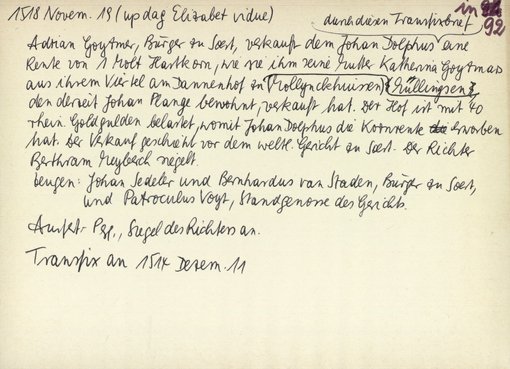 1518 Novem. 19 (up dag Elizabet vidue) durch diesen Transfixbrief in
92
Adrian Goytmer, Bürger zu Soest, verkauft dem Johan Dolphus eine
Rente von 1 Molt Hartkorn, wie sie ihm seine Mutter Katherina Goytmars
aus ihrem Viertel am Dannenhof zu Mollynckhuissen (Müllingsen),
den derzeit Johan Plange bewohnt, verkauft hat. Der Hof ist mit 40
rhein. Goldgulden belastet, womit Johan Dolphus die Kornrente erworben
hat. Der Verkauf geschieht vor dem weltl. Gericht zu Soest. Der Richter
Berthram siegelt.
Zeugen: Johan Sedeler und Bernhardus van Staden, Bürger zu Soest,
und Patroculus Voyt, Standgenosse des Gerichts.
Ausf. Perg., Siegel des Richters an.
Transfix an 1514 Dezem. 11